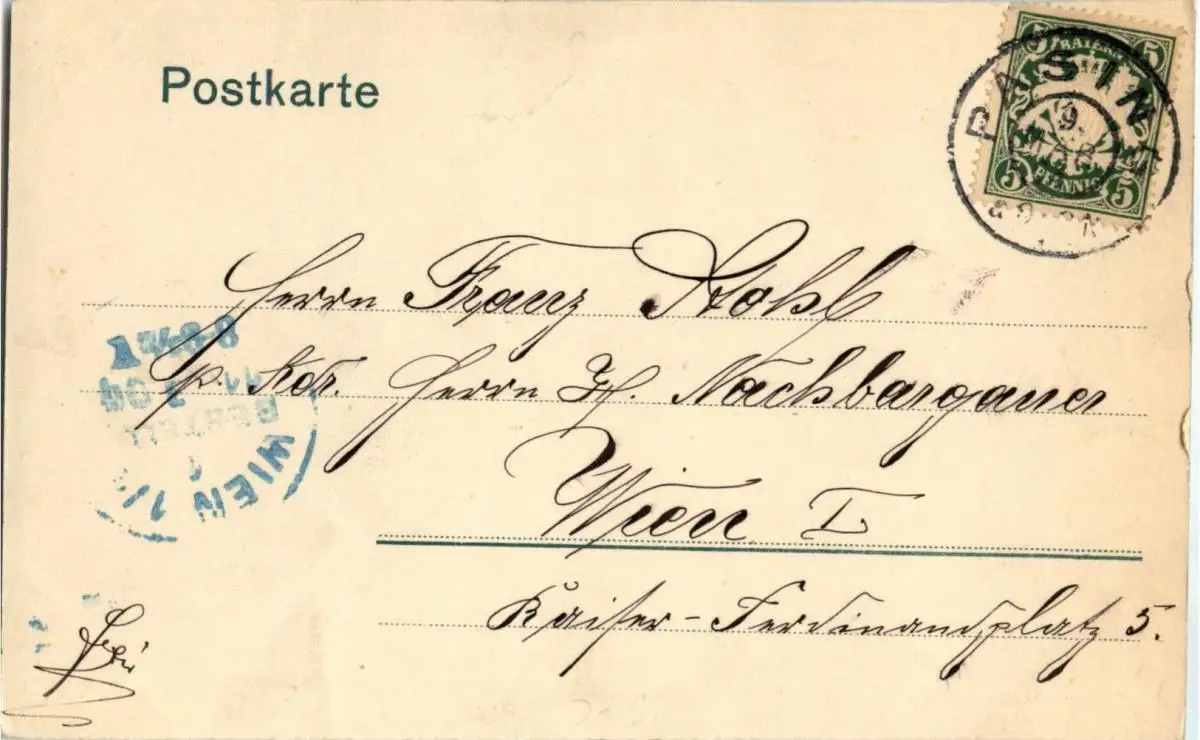 Postkarte
5 BAIERN 5
5 PFENNIG 5
PASING
9.
Herrn Franz Stohl
p. Adr. Herrn H. Nachbargauer
Wien I.
Kaiser-Ferdinandsplatz 5.
WIEN 1/1
BESTELLT